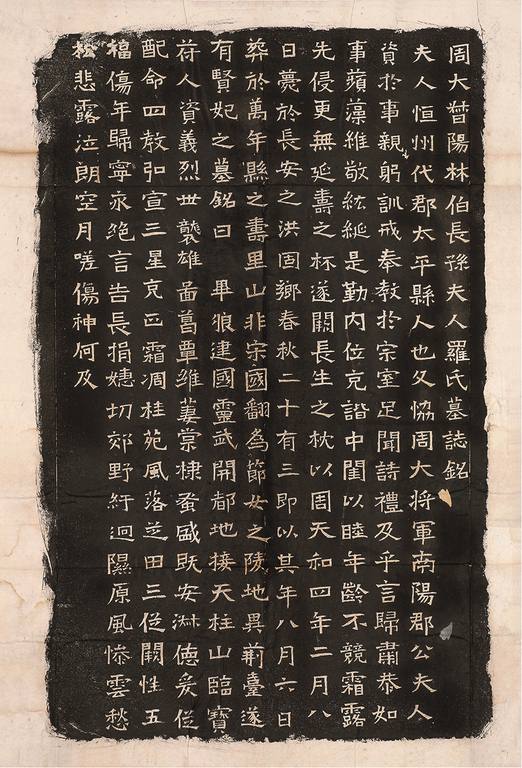 周大督陽林伯長孫夫人羅氏墓誌銘
夫人恒州代郡太平縣人也父恊周大將軍南陽郡公夫人
資於事親躬訓戒奉教於宗室足聞詩禮及乎言歸肅恭如
事蘋藻維敬紘綖是勤內位克諧中閨以睦年齡不競霜露
先侵更無延壽之杯遂闕長生之枕以周天和四年二月八
日薨於長安之洪固鄉春秋二十有三即以其年八月六日
葬於萬年縣之壽里山非宗國翻為節女之陵地異荊臺遂
有賢妃之墓銘曰 畢狼建國靈武開都地接天柱山臨寶
符人資義烈世襲雄啚葛覃維萋棠棣蚤盛既安淋德爰從
配命四教弘宣三星克正霜凋桂苑風落芝田三從闕性五
福傷年歸寧永絶言告長捐㜎切郊野紆迴隰原風慘雲愁
松悲露泣朗空月嗟傷神何及